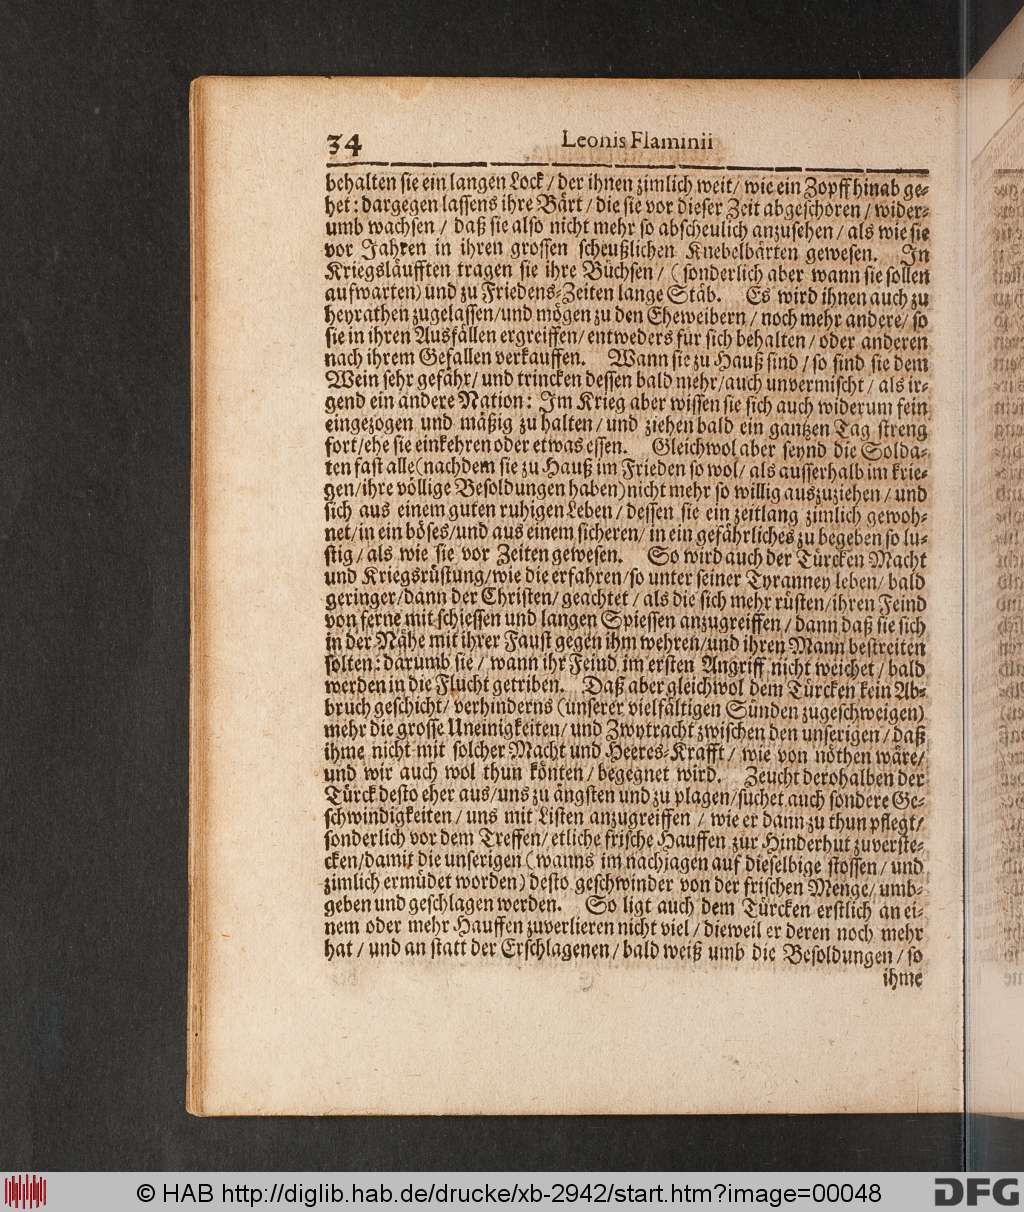 34
Leonis Flaminii
behalten sie ein langen Lock / der ihnen zimlich weit / wie ein Zopff hinab ge-
het: dargegen lassens ihre Bärt / die sie vor dieser Zeit abgeschoren / wider-
umb wachsen / daß sie also nicht mehr so abscheulich anzusehen / als wie sie
vor Jahren in ihren grossen scheußlichen Knebelbärten gewesen. In
Kriegsläufften tragen sie ihre Büchsen / (sonderlich aber wann sie sollen
aufwarten) und zu Friedens-Zeiten lange Stäb. Es wird ihnen auch zu
heyrathen zugelassen/und mögen zu den Eheweibern / noch mehr andere/ so
sie in ihren Ausfällen ergreiffen/ entweders für sich behalten / oder anderen
nach ihrem Gefallen verkauffen. Wann sie zu Hauß sind / so sind sie dem
Wein sehr gefähr/ und trincken dessen bald mehr/auch unvermischt / als ir-
gend ein andere Nation: Im Krieg aber wissen sie sich auch widerum fein
eingezogen und mäßig zu halten/ und ziehen bald ein gantzen Tag streng
fort/ehe sie einkehren oder etwas essen. Gleichwol aber seynd die Solda-
ten fast alle(nachdem sie zu Hauß im Frieden so wol/ als ausserhalb im krie-
gen/ihre völlige Besoldungen haben)nicht mehr so willig auszuziehen / und
sich aus einem guten ruhigen Leben / dessen sie ein zeitlang zimlich gewoh-
net/in ein böses/und aus einem sicheren/ in ein gefährliches zu begeben so lu-
stig / als wie sie vor Zeiten gewesen. So wird auch der Türcken Macht
und Kriegsrüstung/wie die erfahren/so unter seiner Tyranney leben/ bald
geringer/dann der Christen/ geachtet / als die sich mehr rüsten/ihren Feind
von ferne mit schiessen und langen Spiessen anzugreiffen / dann daß sie sich
in der Nähe mit ihrer Faust gegen ihm wehren/und ihren Mann bestreiten
solten: darumb sie / wann ihr Feind im ersten Angriff nicht weichet / bald
werden in die Flucht getriben. Daß aber gleichwol dem Türcken kein Ab-
bruch geschicht/ verhinderns (unserer vielfältigen Sünden zugeschweigen)
mehr die grosse Uneinigkeiten/ und Zwytracht zwischen den unserigen / daß
ihme nicht mit solcher Macht und Heeres-Krafft / wie von nöthen wäre/
und wir auch wol thun könten / begegnet wird. Zeucht derohalben der
Türck desto eher aus/uns zu ängsten und zu plagen/suchet auch sondere Ge-
schwindigkeiten/ uns mit Listen anzugreiffen / wie er dann zu thun pflegt/
sonderlich vor dem Treffen/ etliche frische Hauffen zur Hinderhut zuverste-
cken/damit die unserigen (wanns im nachjagen auf dieselbige stossen / und
zimlich ermüdet worden) desto geschwinder von der frischen Menge/ umb-
geben und geschlagen werden. So ligt auch dem Türcken erstlich an ei-
nem oder mehr Hauffen zuverlieren nicht viel / dieweil er deren noch mehr
hat / und an statt der Erschlagenen / bald weiß umb die Besoldungen / so
ihme
© HAB http://diglib.hab.de/drucke/xb-2942/start.htm?image=00048
DFG